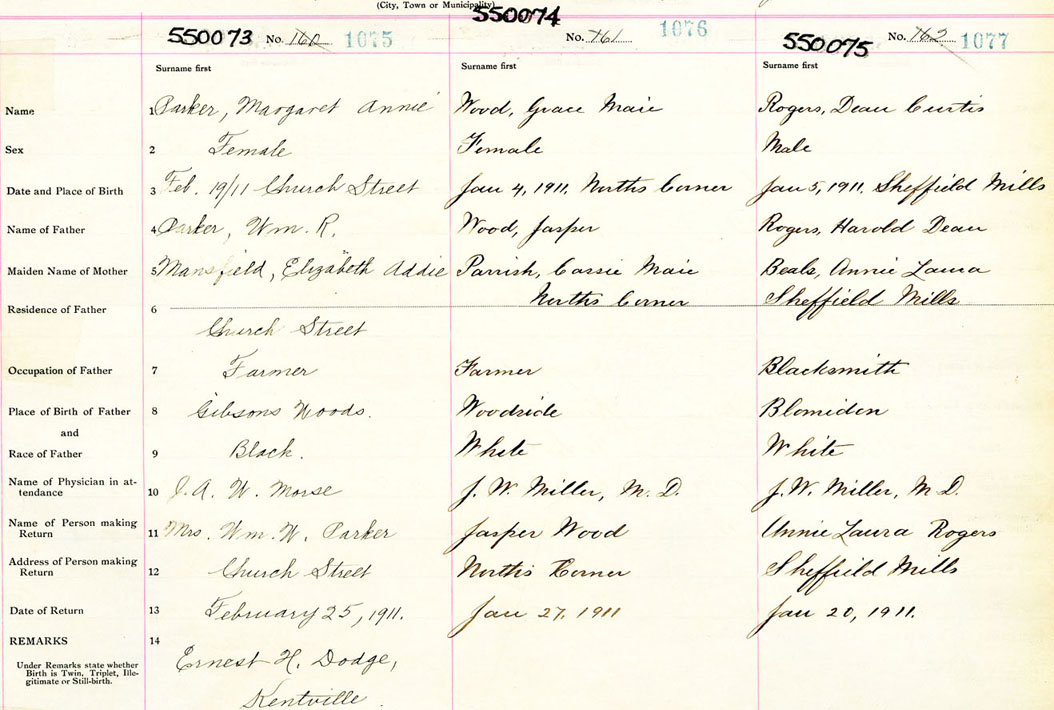 (City, Town or Municipality)
550073 No. 160 1075 550074 No. 161 1076 550075 No. 162 1077
Surname first Surname first Surname first
Name 1 Parker, Margaret Annie Wood, Grace Maie Rogers, Dean Curtis
Sex 2 Female Female Male
Date and Place of Birth 3 Feb. 19/11 Church Street Jan 4, 1911, Norths Corner Jan 5, 1911, Sheffield Mills
Name of Father 4 Parker, Wm. R. Wood, Jasper Rogers, Harold Dean
Maiden Name of Mother 5 Mansfield, Elizabeth Addie Parrish, Cassie Maie Beals, Annie Laura
Norths Corner Sheffield Mills
Residence of Father 6
Church Street
Occupation of Father 7 Farmer Farmer Blacksmith
Place of Birth of Father 8 Gibsons Woods. Woodside Blomiden
and
Race of Father 9 Black. White White
Name of Physician in at-
tendance 10 J. A. W. Morse J. W. Miller, M. D. J. W. Miller, M D.
Name of Person making
Return 11 Mrs. Wm. W. Parker Jasper Wood Annie Laura Rogers
Address of Person making
Return 12 Church Street North's Corner Sheffield Mills
Date of Return 13 February 25, 1911. Jan 27, 1911 Jan 20, 1911.
REMARKS 14
Ernest H. Dodge,
Under Remarks state whether
Birth is Twin, Triplet, Ille-
gitimate or Still-birth.
Kentville.